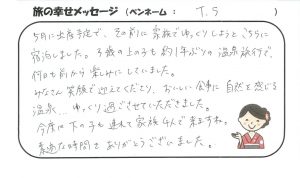 旅の幸せメッセージ (ペンネーム : T.S )
5月に出産予定で、その前に家族でゆっくりしようと こちらに
宿泊しました。 3歳の上の子も 約1年ぶりの 温泉旅行で、
何日も前から 楽しみに していました。
みなさん 笑顔で 迎えてくださり、おいしい 食事に 自然を感じる
温泉... ゆっくり 過ごさせていただきました。
今度は 下の子も 連れて 家族 4人で 来ますね。
素適な時間を ありがとうございました。